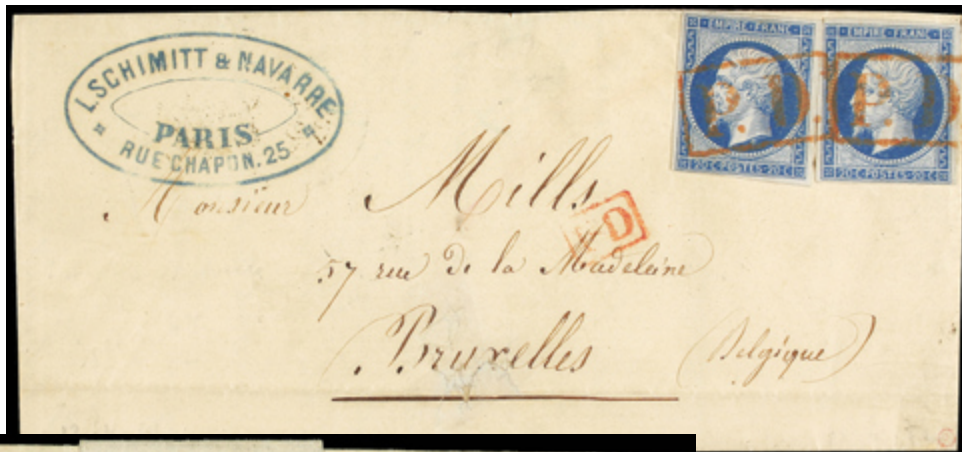 L.SCHIMITT & NAVARRE
PARIS
RUE CHAPON.25
EMPIRE FRANC
20C POSTES 20C
EMPIRE FRANC
20C POSTES 20C
P.D.
P.D
PD
Monsieur Mills
57 rue de la Madeleine
Bruxelles (Belgique)